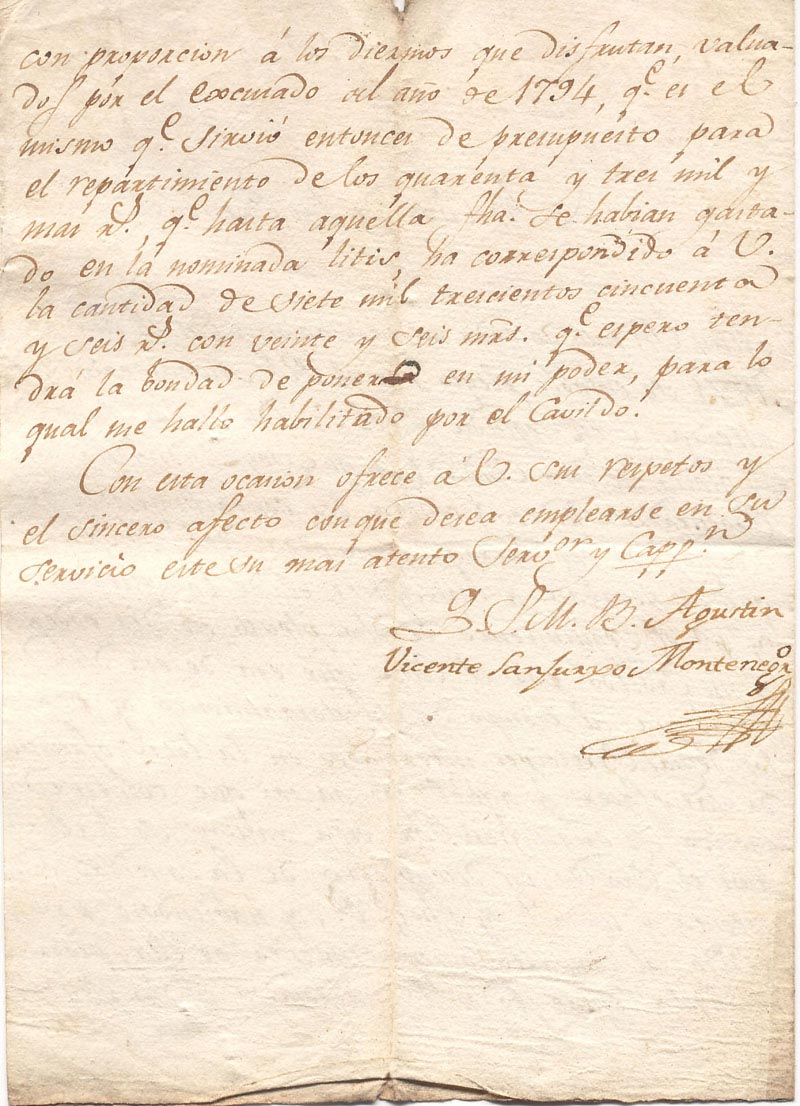 con proporcion á los diezmos que disfrutan, valua-
dos por el Excusado del año de 1794, q.e es el
mismo q.e sirvió entonces de presupuesto para
el repartimiento de los quarenta y tres mil y
mas r.s q.e hasta aquella fha. se habian gasta-
do en la nominada litis, ha correspondido á V.
la cantidad de siete mil trescientos cincuenta
y seis r.s con veinte y seis mrs. q.e espero ten-
drá la bondad de ponerla en mi poder, para lo
qual me hallo habilitado por el Cavildo.
Con esta ocasion ofrece á V. sus respetos y
el sincero afecto conque desea emplearse en su
servicio este su mas atento Serv.or y Capp.n
Q. S. M. B. Agustin
Vicente Sanjurxo Montenegro